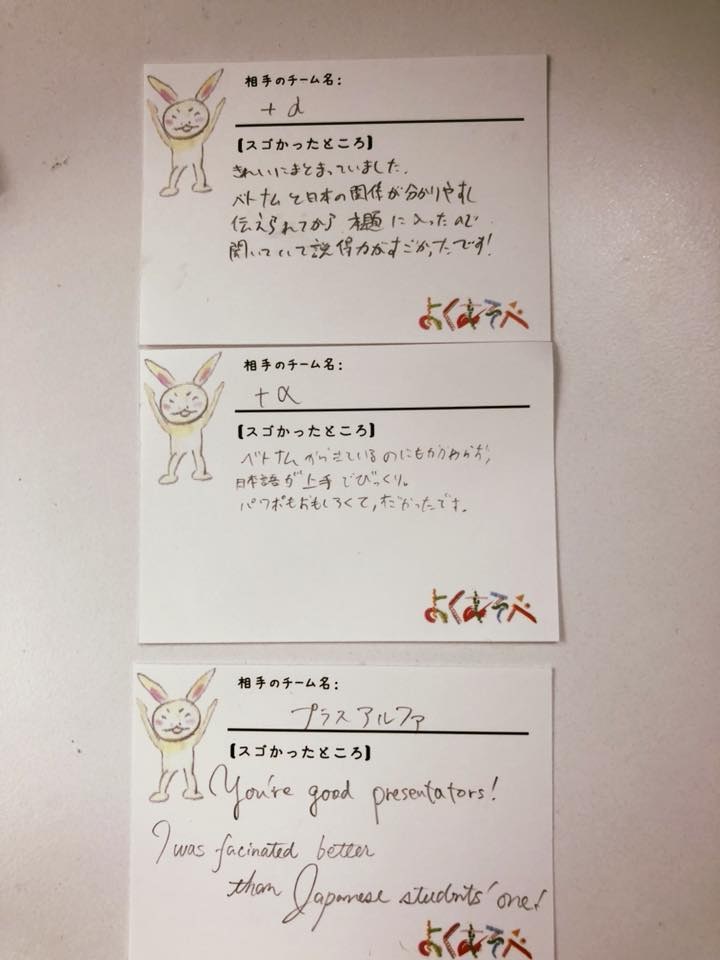 相手のチーム名:
+α
【スゴかったところ】
きれいにまとまっていました。
ベトナムと日本の関係が分かりやすく
伝えられてから本題に入ったので
聞いていて説得力がすごかったです!
よくあそべ
相手のチーム名:
+α
【スゴかったところ】
ベトナムからきているのにもかかわらず,
日本語が上手でびっくり。
パワポもおもしろくて,
よくあそべ
相手のチーム名:
プラスアルファ
【スゴかったところ】
You're good presentators!
I was facinated better
than Japanese students' one!
よくあそべ